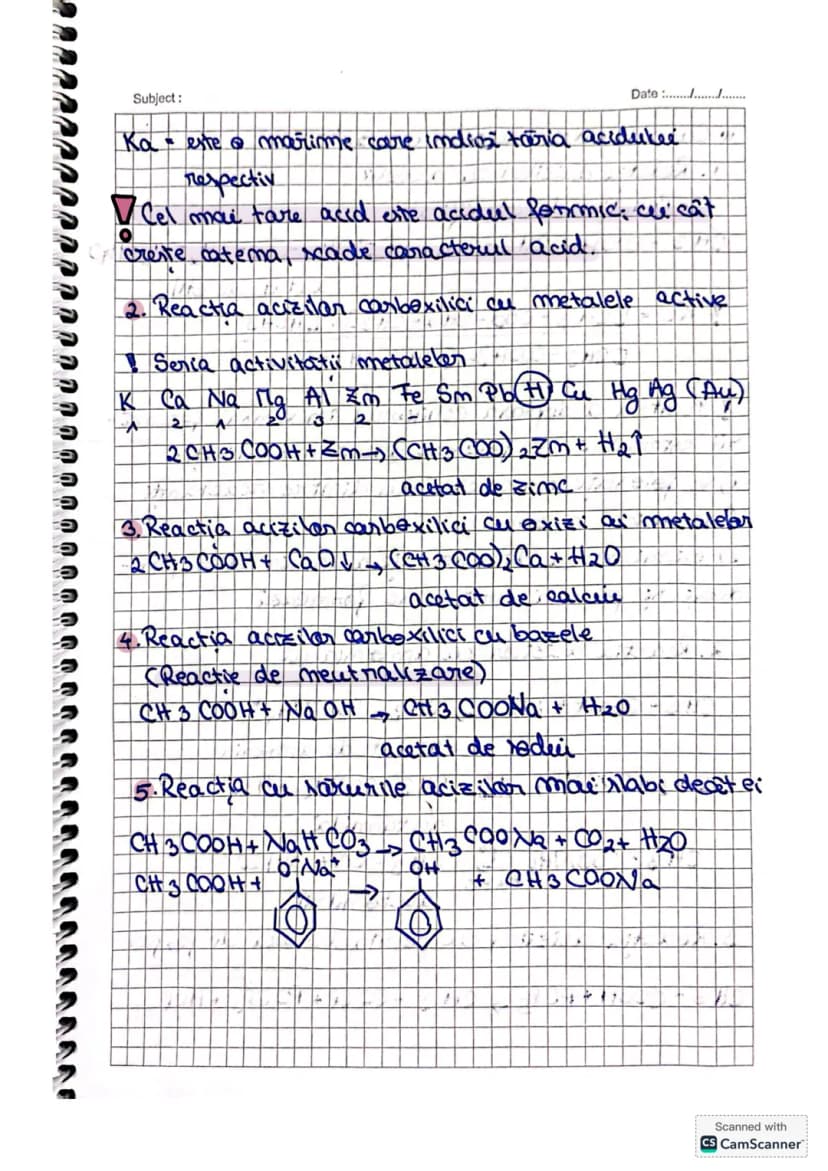 Subject :
Date :....../....../.......
Ka - este o mărime care indică tăria acidului
respectiv
! Cel mai tare acid este acidul formic; cu cât
crește catena, scade caracterul acid.
2. Reacția acizilor carboxilici cu metalele active
! Seria activității metalelor
K Ca Na Mg Al Zn Fe Sn Pb (H) Cu Hg Ag (Au)
1 2 1 2 3 2 -
2 CH3 COOH + Zn → (CH3 COO)2 Zn + H2↑
acetat de zinc
3. Reacția acizilor carboxilici cu oxizi ai metalelor
2 CH3 COOH + CaO↓ → (CH3 COO)2 Ca + H2O
acetat de calciu
4. Reacția acizilor carboxilici cu bazele
(Reacție de neutralizare)
CH3 COOH + NaOH → CH3 COONa + H2O
acetat de sodiu
5. Reacția cu sărurile acizilor mai slabi decât ei
CH3COOH + NaHCO3 → CH3COONa + CO2 + H2O
O⁻Na⁺ OH
CH3 COOH + → + CH3COONa
Scanned with
CS CamScanner